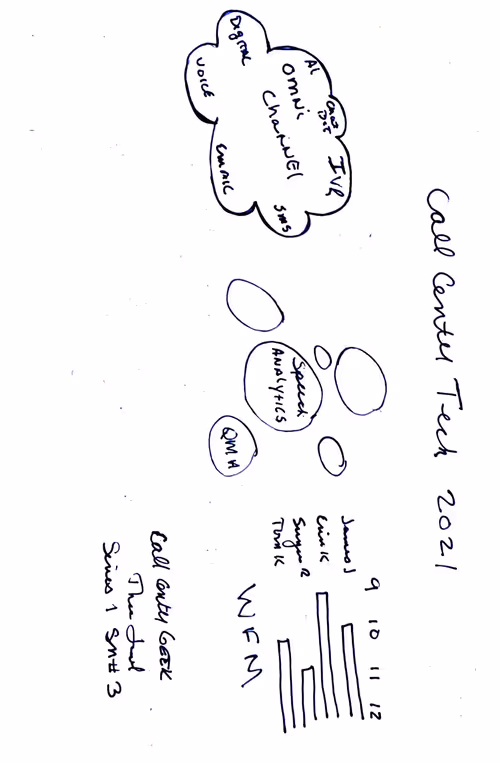 Call Center Tech 2021
DIGITAL
AI
CHAT
BOT
IVR
OMNI
CHANNEL
VOICE
EMAIL
SMS
Speech
ANALYTICS
QMA
9 10 11 12
James J
Erin K
Tom K
WFM
Call Center GEEK
Series 1
# 3